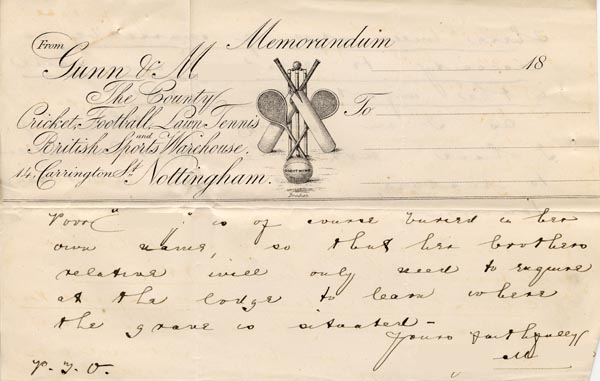 Memorandum
From
Gunn & M
18
The County
Cricket, Football, Lawn Tennis
and
British Sports Warehouse.
14, Carrington St. Nottingham.
To
Poor " " is of course buried in her
own name, so that her brothers
relative will only need to enquire
at the lodge to learn where
the grave is situated -
Yours faithfully
M
P. T. O.